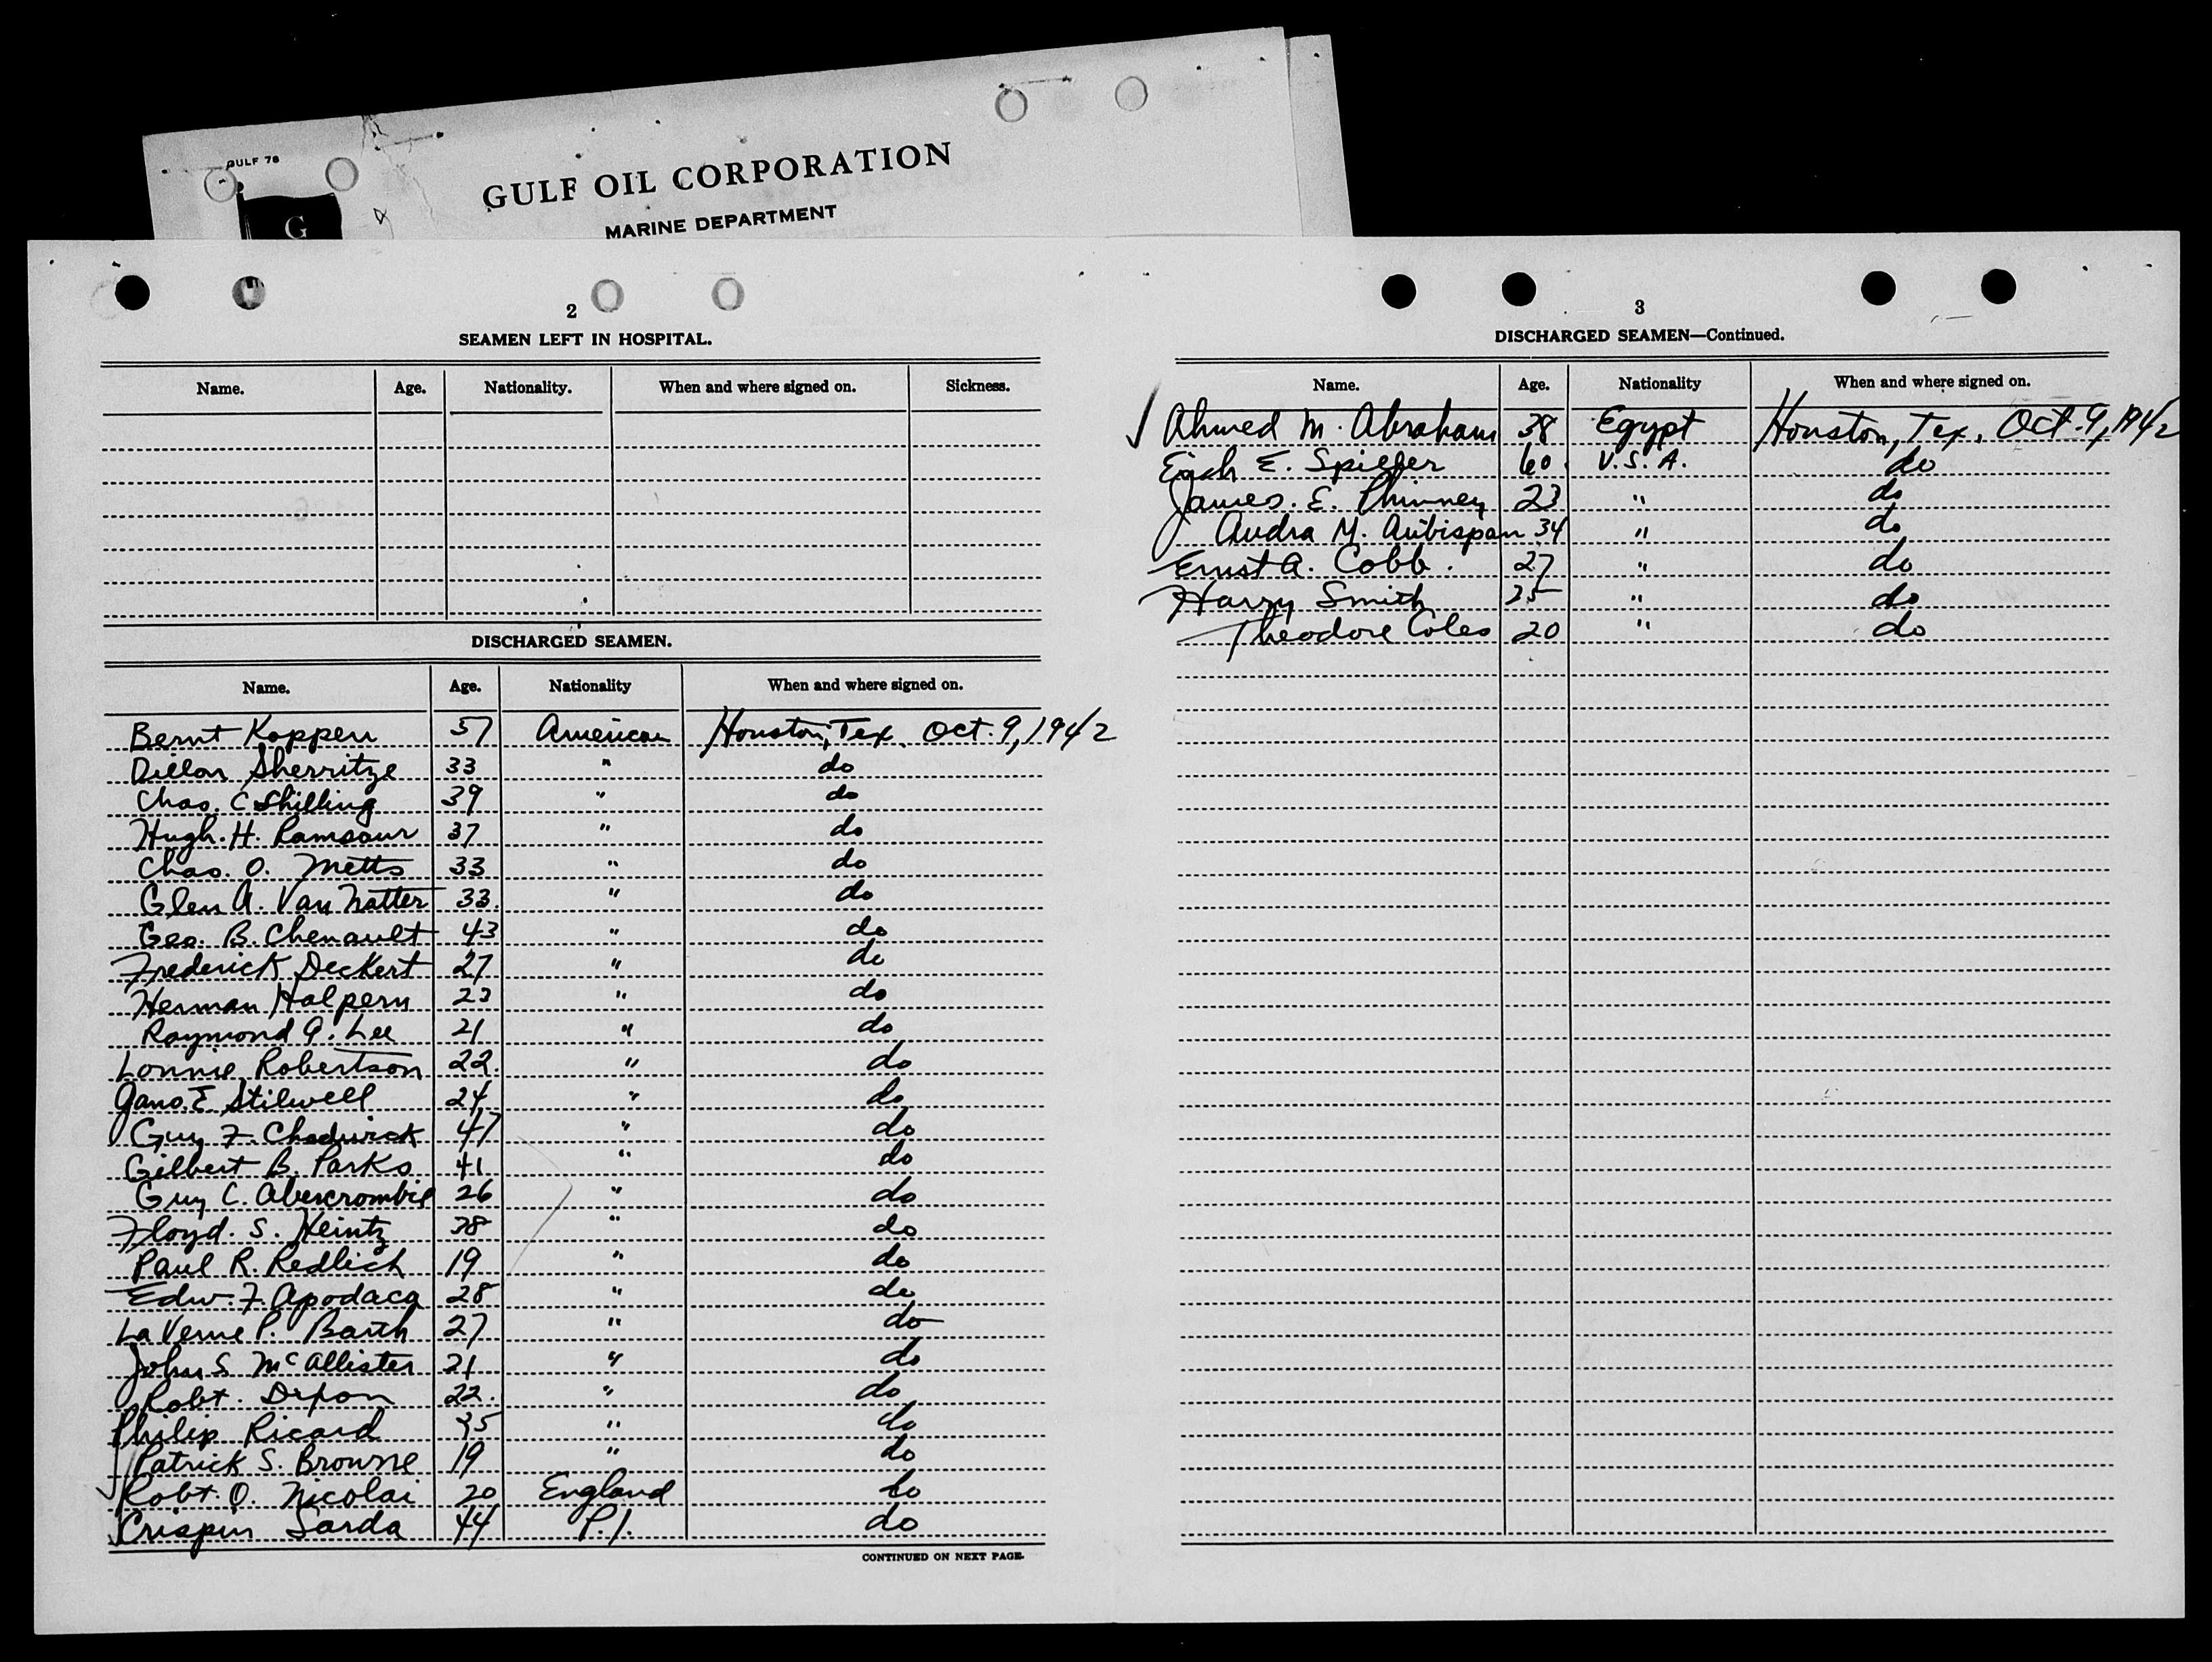 GULF 78
G
GULF OIL CORPORATION
MARINE DEPARTMENT
2
SEAMEN LEFT IN HOSPITAL.
Name. Age. Nationality. When and where signed on. Sickness.
DISCHARGED SEAMEN.
Name. Age. Nationality When and where signed on.
Bernt Koppen 57 American Houston, Tex. Oct. 9, 1942
Dillon Sherritze 33 " do
Chas. C Shilling 39 " do
Hugh. H. Ramsour 37 " do
Chas. O. Metts 33 " do
Glen A. Van Natter 33 " do
Geo. B. Chenault 43 " do
Frederick Deckert 27 " do
Herman Halpern 23 " do
Raymond A. Lee 21 " do
Lonnie Robertson 22 " do
E. Stilwell 24 " do
Guy F. Chadwick 47 " do
Gilbert B. Parks 41 " do
Guy C. Abercrombie 26 " do
Floyd. S. Heintz 38 " do
Paul R. Redlich 19 " do
Edw. F. Apodaca 28 " do
LaVerne P. Barth 27 " do
John S. McAllister 21 " do
Robt. 22 " do
Philip Ricard 35 " do
Patrick S. Browne 19 " do
Robt. O. Nicolai 20 England do
Crispin Sarda 44 P.I. do
CONTINUED ON NEXT PAGE.
3
DISCHARGED SEAMEN—Continued.
Name. Age. Nationality When and where signed on.
Ahmed M. Abraham 38 Egypt Houston, Tex. Oct. 9, 1942
E. 60 U.S.A. do
James. E. Phinney 23 " do
Audra M. Aubispan 34 " do
Ernst A. Cobb. 27 " do
Harry Smith 25 " do
Theodore Coles 20 " do